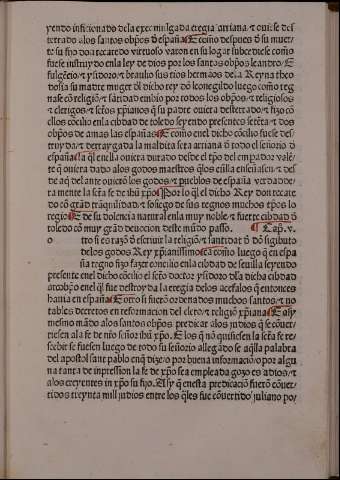 yendo inficionado dela exec mulgada eregia arriana. ⁊ ouiese des
terrado alos santos obp̃os d̃ españa ¶ E com̃o despues d̃ su muer
te su fijo don recaredo virtuoso varon en su logar subcediese com̃o
fuese instruydo enla ley de dios por los santos obp̃os leandro. E
fulgẽcio. ⁊ ysidoro. ⁊ braulio sus tios hermãos dela Reyna theo
dosia su madre muger dl̃ dicho rey dõ leonegildo luego com̃o reg
nase cõ religiõ. ⁊ sãtidad embio por todos los obp̃os. ⁊ religiosos
⁊ clerigos. ⁊ señõs xp̃ianos q̃ su padre ouiera desterrado. ⁊ fizo cõ
ellos cõcilio enla cibdad de toledo seyendo presentes setẽta. ⁊ dos
obp̃os de amas las españas ¶ E com̃o enel dicho cõcilio fuese des-
truyda. ⁊ derraygada la maldita seta arriana d̃ todo el señorio d̃
españa ¶ la q̃l enella ouiera durado desde el tp̃o del enpador valẽ-
te q̃ ouiera dado alos godos maestros q̃los ẽlla enseñasen. ⁊ des
de aq̃l delante ouierõ los godos. ⁊ pueblos de españa verdadera-
mente la sẽta fe de ihũ xp̃o ¶ Por lo q̃l el dicho Rey don recare
do cõ grãd trãquilidad. ⁊ sosiego de sus regnos muchos tp̃os lo
regio ¶ E de su dolencia natural enla muy noble. ⁊ fuerte cibdad d̃
toledo cõ muy grãd deuocion deste mũdo passo. ¶ Cap̃. v.
o tro si es razõ d̃ escriuir la religiõ. ⁊ santidat d̃ dõ sigibuto
delos godos Rey xp̃ianissimo ¶ ca com̃o luego q̃ en espa
ña regno fizo fazer concilio enla cibdad de seuilla seyendo
presente enel dicho cõcilio el señõ doctor ysidoro dl̃a dicha cibdad
arcobp̃o enel q̃l fue destroyda la eregia delos acefalos q̃ entonces
hauia en españa ¶ E otro si fuerõ ordenados muchos santos. ⁊ no
tables decretos en reformacion del clero. ⁊ religiõ xp̃iana ¶ E asy
mesmo mãdo alos santos obp̃os predicar alos judios q̃ se cõuer-
tiesen ala fe de nr̃o señor ihũ xp̃o. E los q̃ nõ quisiesen la sẽta fe re-
scebir se fuesen luego de todo su señorio allegado se aq̃lla palabra
del apostol sant pablo enq̃ dize/o por buena informaciõ/o por algu
na tanta de inpression la fe de xp̃o sea empleada gozo es a dios. ⁊
alos creyentes in xp̃o su fijo. Asy q̃ enesta predicaciõ fuerõ cõuer-
tidos treynta mill judios entre los q̃les fue cõuertido juliano po/